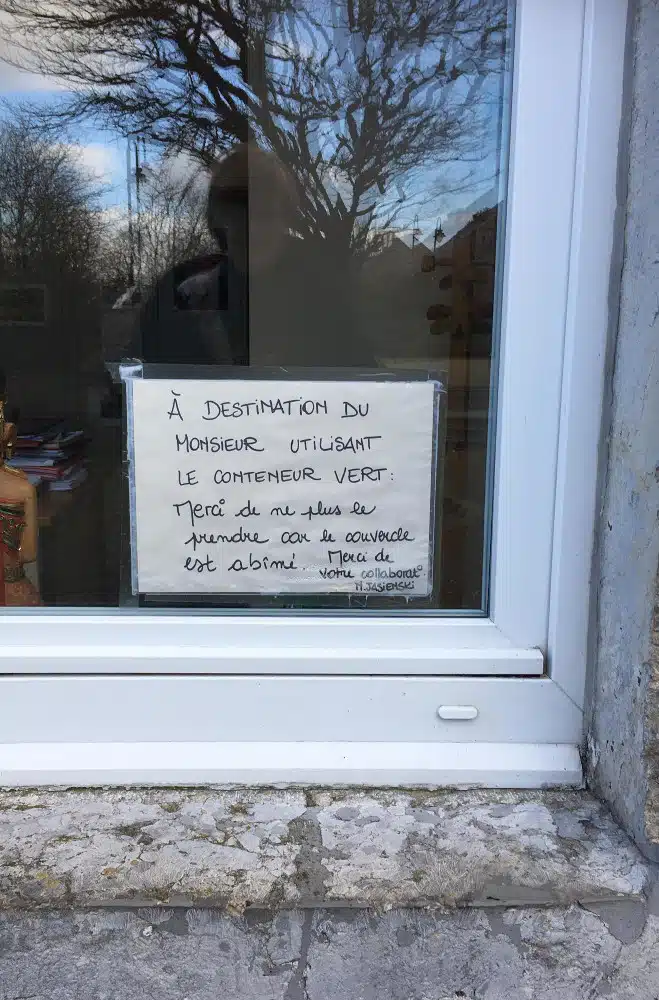 À DESTINATION DU
MONSIEUR UTILISANT
LE CONTENEUR VERT:
Merci de ne plus le
prendre car le couvercle
est abîmé. Merci de
votre collaborat°
M.JASIENSKI